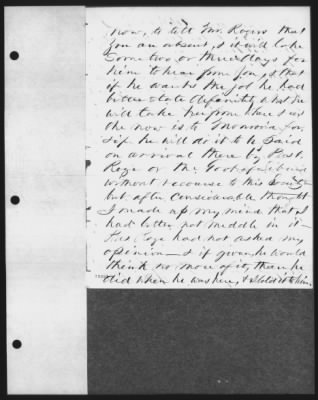 now, to tell Mr. Rogers that
you are absent, & it will take
some two or three days for
him to hear from you, & that
if he wants the job he had
better state definitely what he
will take her from where she is
now is to Monrovia for,
& if he will do it to be paid
on arrival there by Prest.
Roye or the Govt of Liberia
without recourse to this Society
but after considerable thought
I made up my mind that I
had better not meddle in it—
Pres Roye had not asked my
opinion— & if given, he would
think no more of it, than he
did when he was here, & I told it to him.